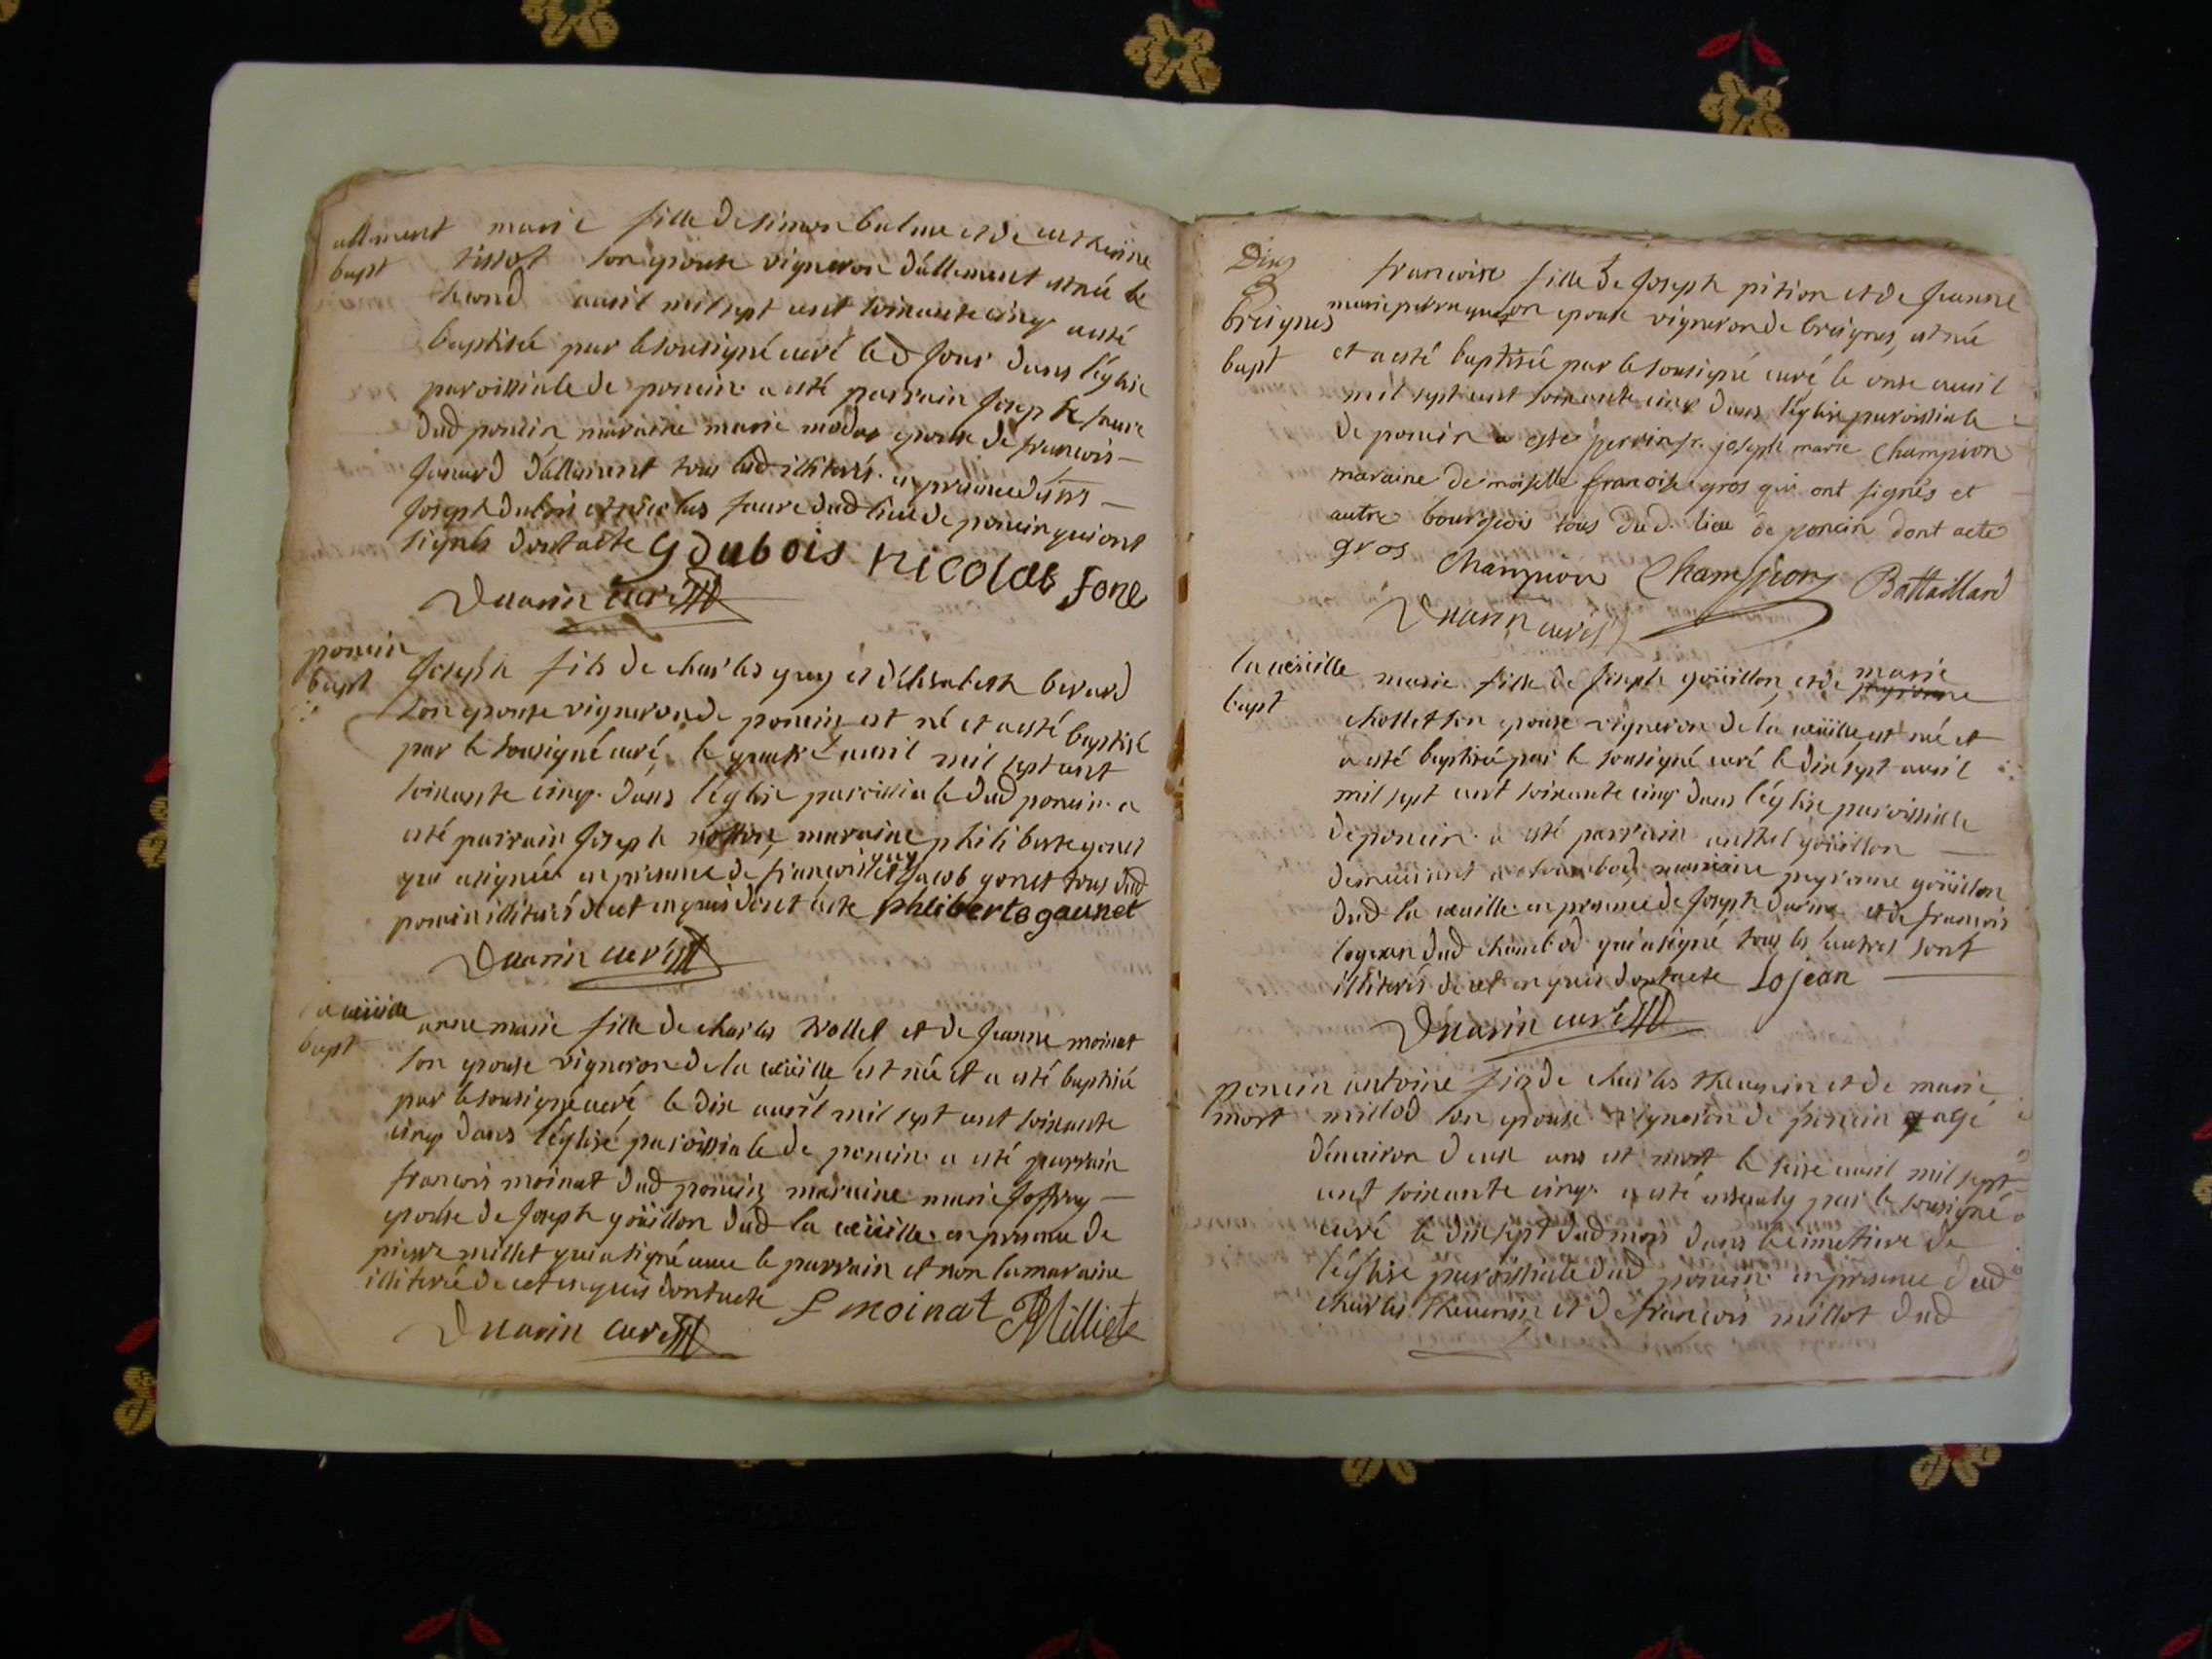 allement
bapt
marie fille de simon balme et de catherine
tissot son epouse vigneron d'allement est née le
second auril mil sept cent soixante cinq a esté
baptisée par le sousigné curé led jour dans l'église
paroissiale de poncin a esté parrain joseph faure
dud poncin, maraine marie épouse de francois
d'allement tous lesd illiterés en presence de srs
joseph dubois et nicolas faure dud lieu de poncin qui ont
signés dont acte G dubois nicolas fore
Duarin curé
poncin
bapt
joseph fils de charles guy et d'elisabeth berard
son epouse vigneron de poncin est né et a esté baptisé
par le sousigné curé le quatre auril mil sept cent
soixante cinq dans l'église paroissiale dud poncin a
esté parrain joseph maraine philiberte gonet
qui a signée en presence de francois guy et jacob gonet tous dud
poncin illiterés de cet enquis dont acte phlibertegaunet
Duarin curé
la cueuille
bapt
anne marie fille de charles trollet et de jeanne moinat
son epouse vigneron de la cueuille est née et a esté baptisée
par le sousigné curé le dix auril mil sept cent soixante
cinq dans l'église paroissiale de poncin a esté parrain
francois moinat dud poncin, maraine marie joffray
epouse de joseph goüillon dud la cueuille en presence de
pierre millet qui a signé auec le parrain et non la maraine
illiterée de cet enquis dont acte f moinat P Milliete
Duarin curé
breignes
bapt
francoise fille de joseph pition et de jeanne
marie son epouse vigneron de breignes, est née
et a esté baptisée par le sousigné curé le onze auril
mil sept cent soixante cinq dans l'église paroissiale
de poncin a esté perrin sr. joseph marie Champion
maraine demoiselle francoise gros qui ont signés et
autre bourgeois tous dud. lieu de poncin dont acte
gros Champion Champion Battaillard
Duarin curé
la cueuille
bapt
marie fille de joseph goüillon, et de marie
chollet son epouse vigneron de la cueuille est née et
a esté baptisée par le sousigné curé le dix sept auril
mil sept cent soixante cinq dans l'église paroissiale
de poncin a esté parrain anthel goüillon
demeurant a chambod, maraine peyronne goüillon
dud la cueuille en presence de joseph et de francois
dud chambod qui a signé tous les hautres sont
illiterés de cet enquis dont acte Lojean
Duarin curé
poncin
mort
antoine fis de charles theuenin et de marie
millod son epouse vigneron de poncin agé
d'enuiron deux ans est mort le seise auril mil sept
cent soixante cinq a esté enseuely par le sousigné
curé le dix sept dud mois dans le cimetiere de
l'église paroissiale dud poncin en presence dud
charles theuenin et de francois millot dud